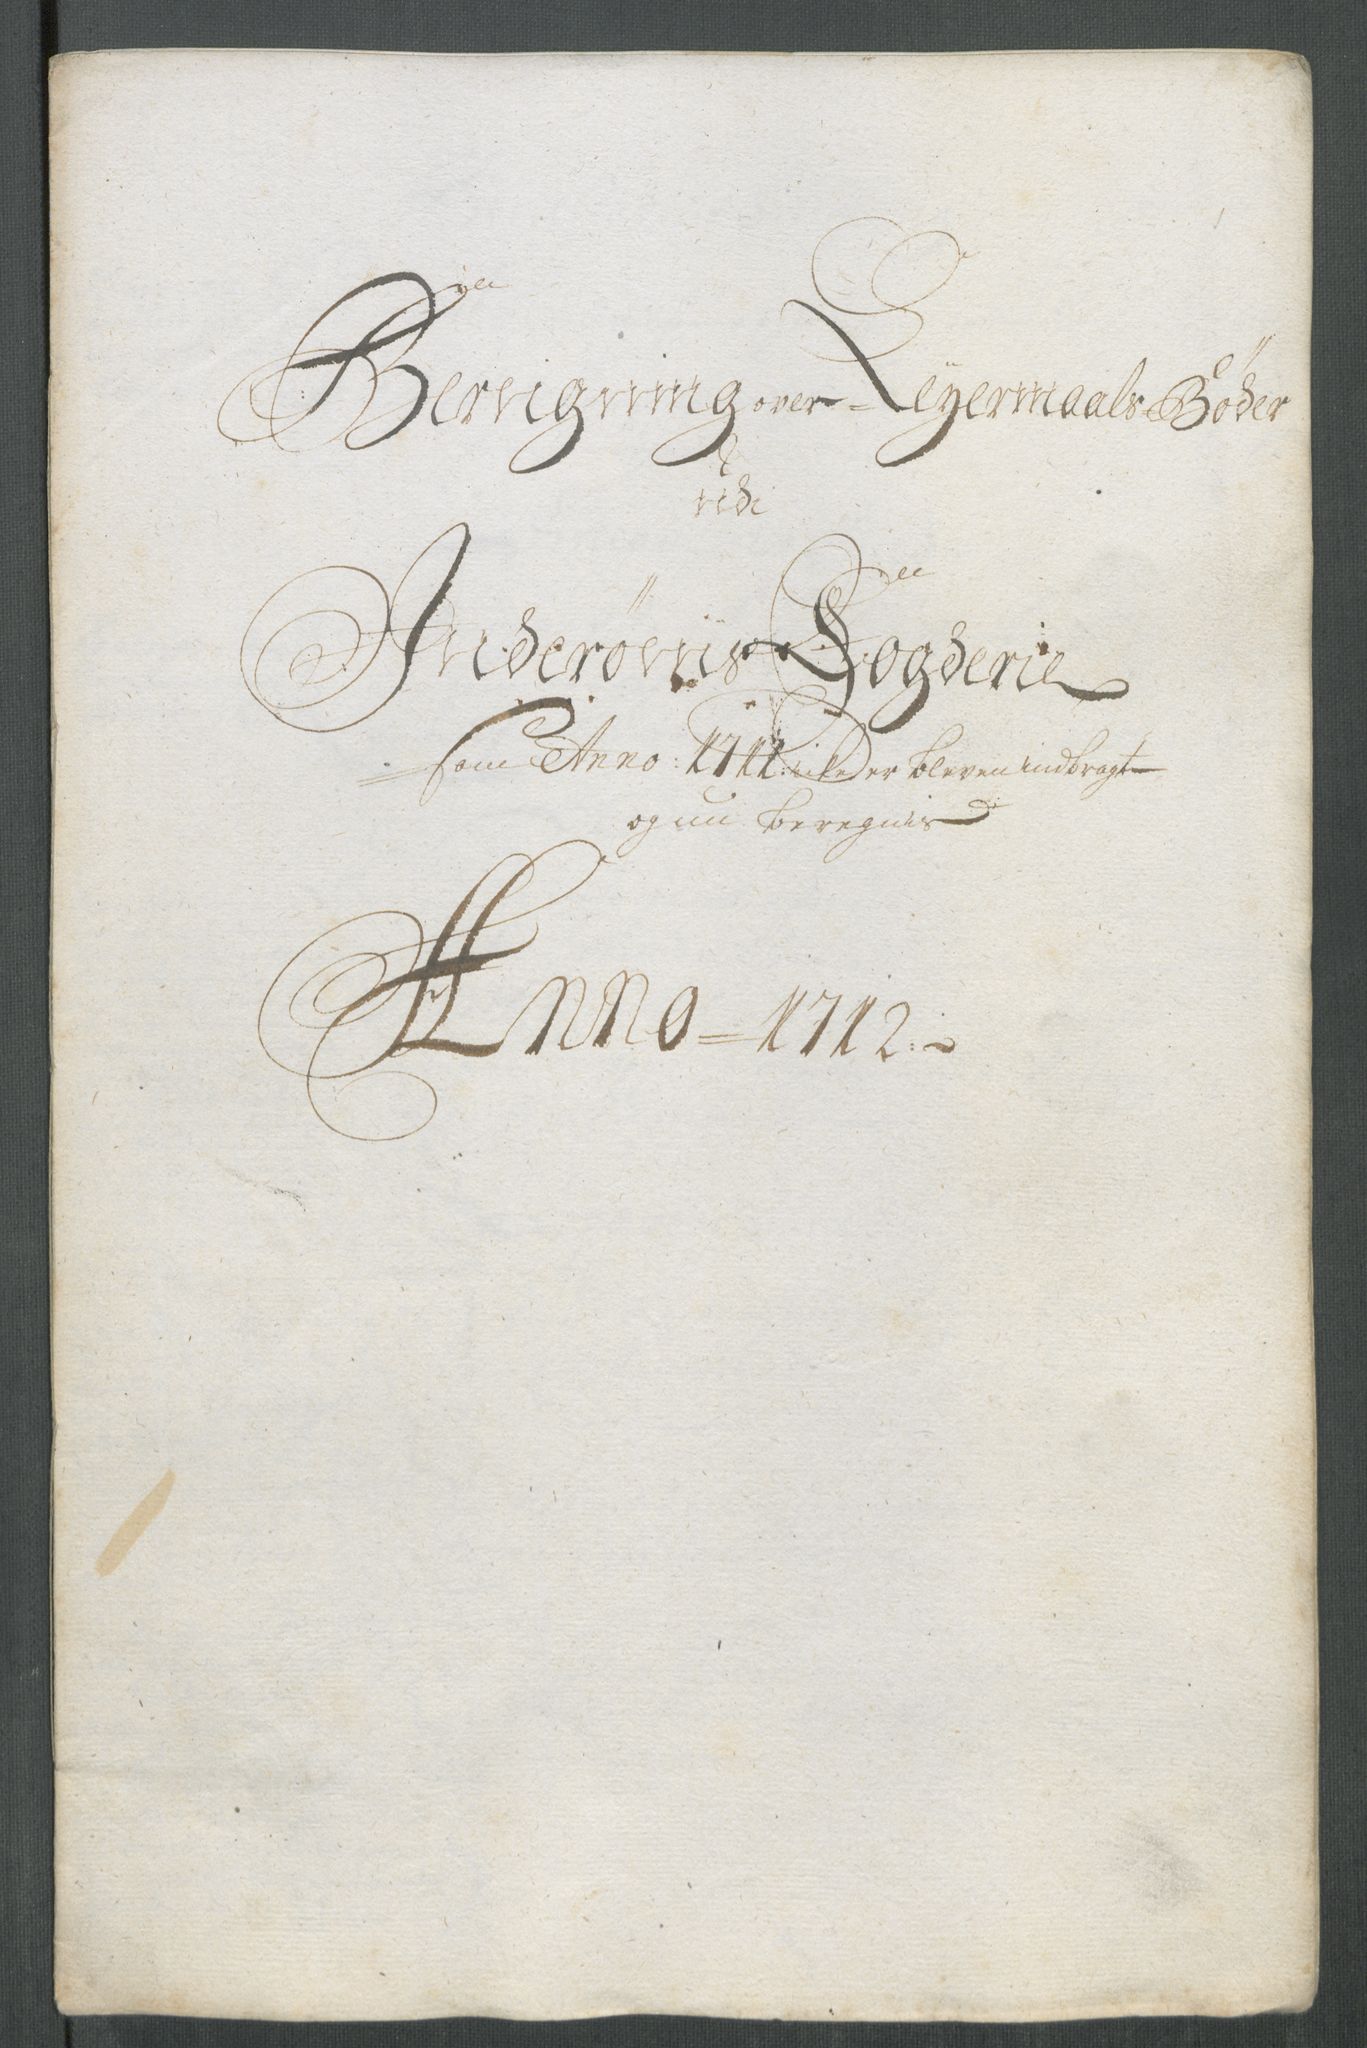 Beregning over Leÿermaals Böder
udi
Inderöens Fogderie
som Anno 1711: icke er bleven indbragt
og nu beregnis
Anno = 1712: